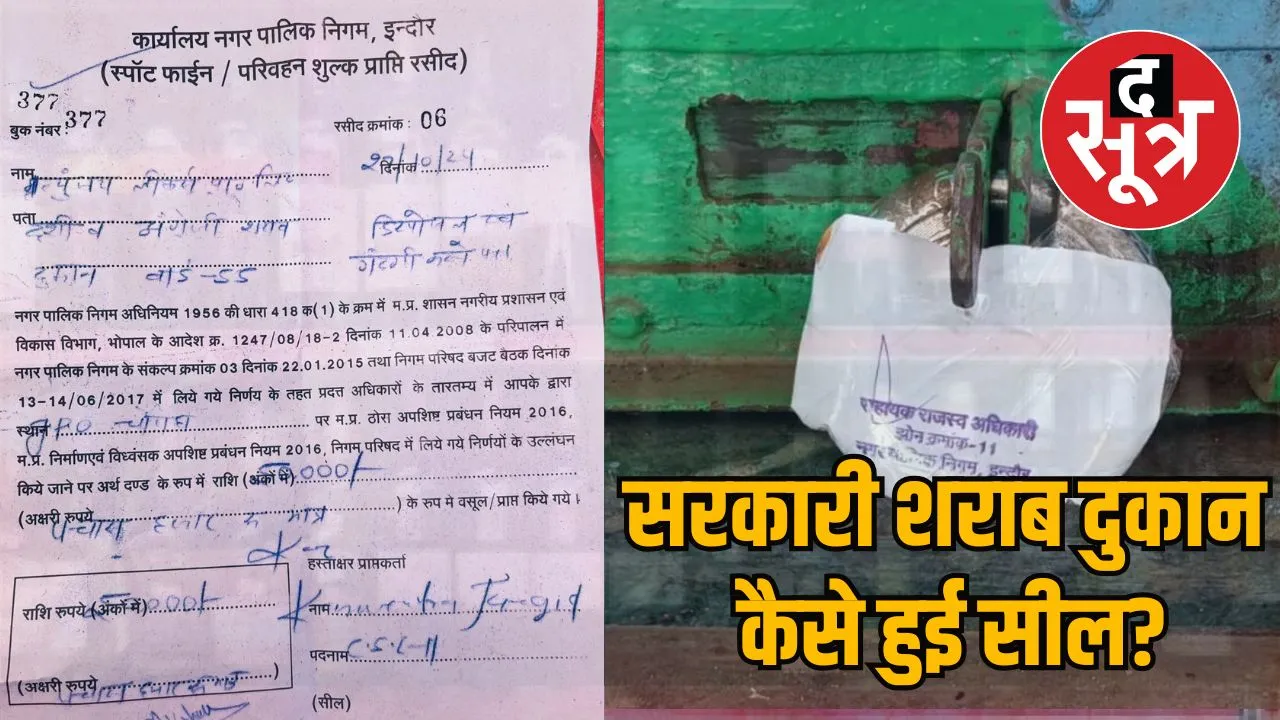 कार्यालय नगर पालिक निगम, इन्दौर
(स्पॉट फाईन / परिवहन शुल्क प्राप्ति रसीद)
377
बुक नंबर : 377
रसीद क्रमांक : 06
नाम
दिनांक
पता
दुकान वार्ड-55
नगर पालिक निगम अधिनियम 1956 की धारा 418 क(1) के क्रम में म.प्र. शासन नगरीय प्रशासन एवं
विकास विभाग, भोपाल के आदेश क्र. 1247/08/18-2 दिनांक 11.04 2008 के परिपालन में
नगर पालिक निगम के संकल्प क्रमांक 03 दिनांक 22.01.2015 तथा निगम परिषद बजट बैठक दिनांक
13-14/06/2017 में लिये गये निर्णय के तहत प्रदत्त अधिकारों के तारतम्य में आपके द्वारा
स्थान पर म.प्र. ठोरा अपशिष्ट प्रबंधन नियम 2016,
म.प्र. निर्माणएवं विध्वंसक अपशिष्ट प्रबंधन नियम 2016, निगम परिषद में लिये गये निर्णयों के उल्लंघन
किये जाने पर अर्थ दण्ड के रुप में राशि (अंकों में)
(अक्षरी रुपये पचास हजार रु मात्र ) के रुप मे वसूल/प्राप्त किये गये।
हस्ताक्षर प्राप्तकर्ता
राशि रुपये (अंकों में)
नाम
पदनाम
(अक्षरी रुपये )
(सील)
द
सूत्र
सहायक राजस्व अधिकारी
झोन क्रमांक-11
निगम, इन्दौर
सरकारी शराब दुकान
कैसे हुई सील?